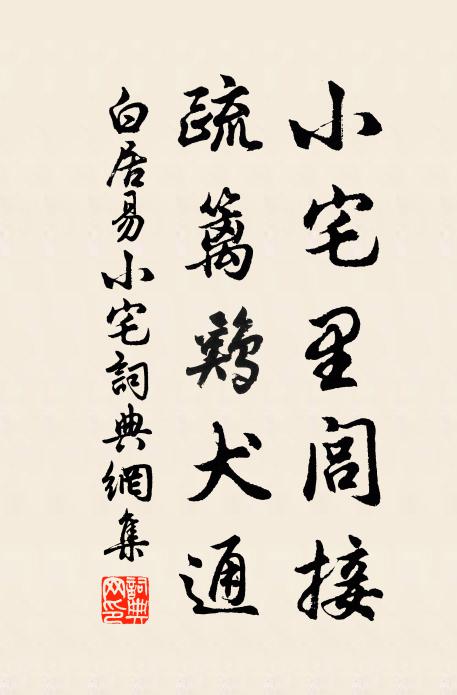 小宅里閭接
疏篱鷄犬通
白居易小宅詞典網集
詞典
网印